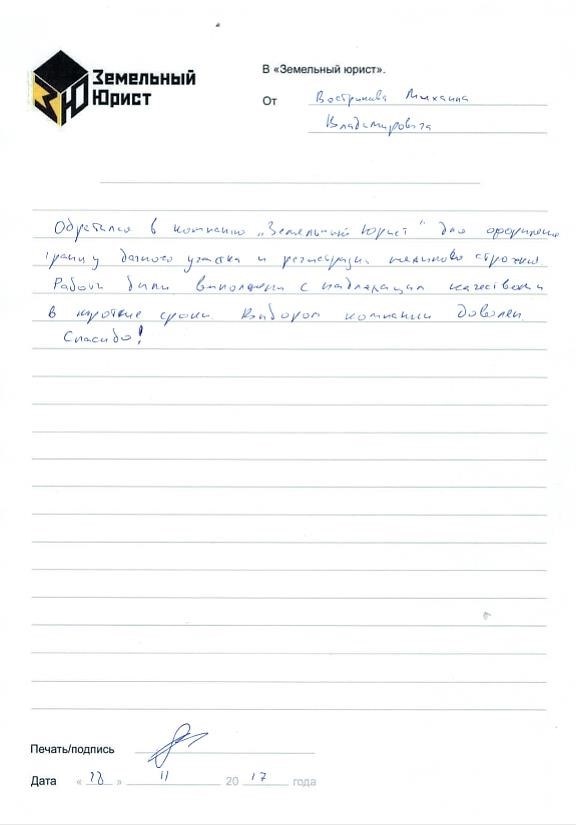 Земельный
Юрист
В «Земельный юрист».
От Вострикова Михаила
Владимировича
Обратился в компанию „Земельный Юрист“ для оформления
границ дачного участка и регистрации строения.
Работы были выполнены с надлежащим качеством и
в короткие сроки. Выбором компании доволен.
Спасибо!
Печать/подпись
Дата « » 11 2017 года